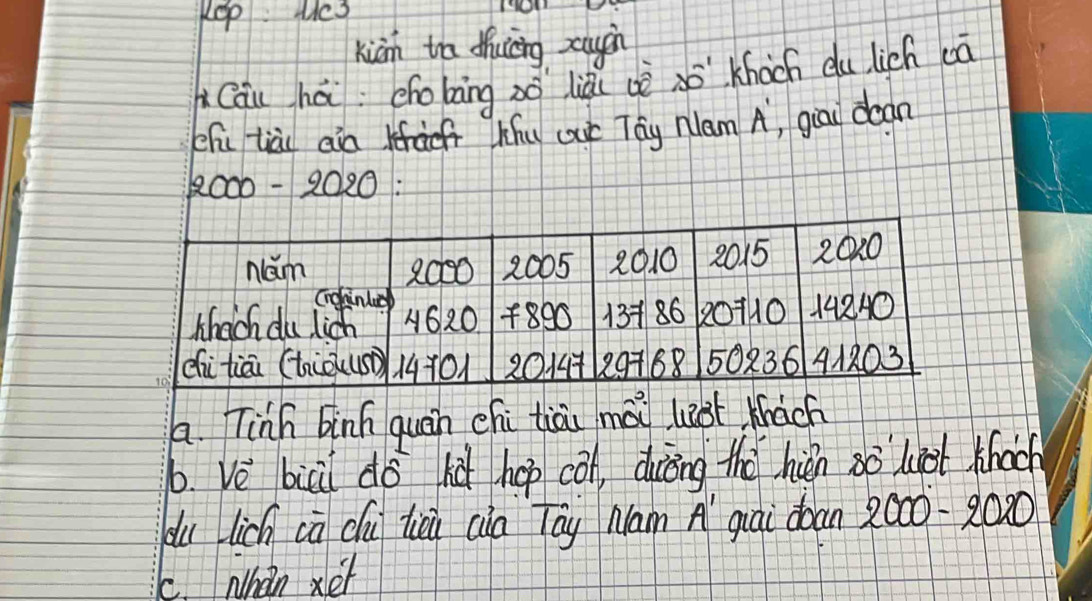 Lớp: 11C3
Kiểm tra thường xuyên
* Câu hỏi: cho bảng số liệu về số khách du lịch và
chi tiêu của khu vực Tây Nam Á, giai đoạn
2000 - 2020:
Năm 2000 2005 2010 2015 2020
Khách du lịch (nghìn lượt) 4620 7890 13786 20710 14240
chi tiêu (triệu USD) 14701 20147 29768 50236 41203
a. Tính bình quân chi tiêu mỗi lượt khách
b. Vẽ biểu đồ kết hợp cột, đường thể hiện số lượt khách
du lịch và chi tiêu của Tây Nam Á giai đoạn 2000 - 2020
c. Nhận xét